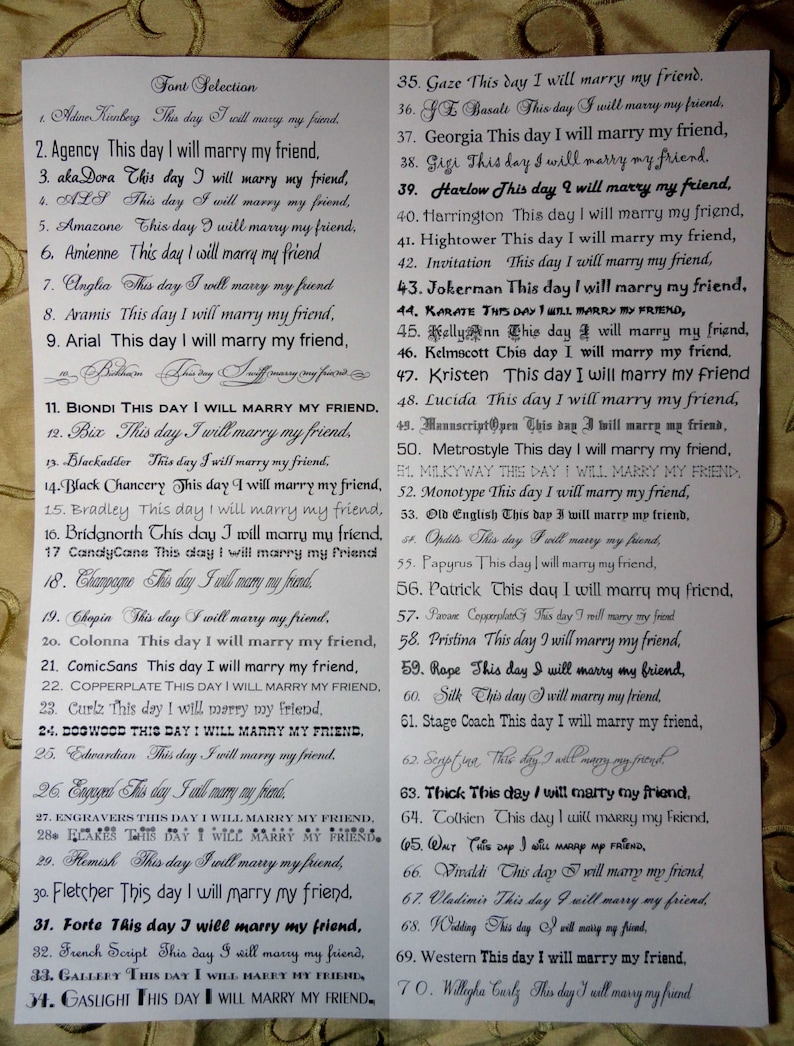 Font Selection
1. AdineKirnberg This day I will marry my friend,
2. Agency This day I will marry my friend,
3. akaDora This day I will marry my friend,
4. ALS This day I will marry my friend,
5. Amazone This day I will marry my friend,
6. Amienne This day I will marry my friend
7. Anglia This day I will marry my friend
8. Aramis This day I will marry my friend,
9. Arial This day I will marry my friend,
10. Bickham This day I will marry my friend
11. BIONDI THIS DAY I WILL MARRY MY FRIEND,
12. Bix This day I will marry my friend,
13. Blackadder This day I will marry my friend,
14. Black Chancery This day I will marry my friend,
15. Bradley This day I will marry my friend,
16. Bridgnorth This day I will marry my friend,
17 CandyCane This day I will marry my friend
18. Champagne This day I will marry my friend,
19. Chopin This day I will marry my friend,
20. Colonna This day I will marry my friend,
21. ComicSans This day I will marry my friend,
22. COPPERPLATE THIS DAY I WILL MARRY MY FRIEND,
23. Curlz This day I will marry my friend,
24. DOGWOOD THIS DAY I WILL MARRY MY FRIEND,
25. Edwardian This day I will marry my friend,
26. Engaged This day I will marry my friend,
27. ENGRAVERS THIS DAY I WILL MARRY MY FRIEND,
28. FLAKES THIS DAY I WILL MARRY MY FRIEND.
29. Flemish This day I will marry my friend,
30. Fletcher This day I will marry my friend,
31. Forte This day I will marry my friend,
32. French Script This day I will marry my friend,
33. GALLERY THIS DAY I WILL MARRY MY FRIEND,
34. GASLIGHT THIS DAY I WILL MARRY MY FRIEND,
35. Gaze This day I will marry my friend.
36. GE Basalt This day I will marry my friend,
37. Georgia This day I will marry my friend,
38. Gigi This day I will marry my friend,
39. Harlow This day I will marry my friend,
40. Harrington This day I will marry my friend,
41. Hightower This day I will marry my friend,
42. Invitation This day I will marry my friend,
43. Jokerman This day I will marry my friend,
44. KARATE THIS DAY I WILL MARRY MY FRIEND,
45. KellyAnn This day I will marry my friend,
46. Kelmscott This day I will marry my friend,
47. Kristen This day I will marry my friend
48. Lucida This day I will marry my friend,
49. ManuscriptOpen This day I will marry my friend,
50. Metrostyle This day I will marry my friend,
51. MILKYWAY THIS DAY I WILL MARRY MY FRIEND,
52. Monotype This day I will marry my friend,
53. Old English This day I will marry my friend,
54. Opdits This day I will marry my friend,
55. Papyrus This day I will marry my friend,
56. Patrick This day I will marry my friend,
57. Pavane CopperplateG This day I will marry my friend
58. Pristina This day I will marry my friend,
59. Rope This day I will marry my friend,
60. Silk This day I will marry my friend,
61. Stage Coach This day I will marry my friend,
62. Scriptina This day I will marry my friend,
63. Thick This day I will marry my friend,
64. Tolkien This day I will marry my friend,
65. WALT THIS DAY I WILL MARRY MY FRIEND,
66. Vivaldi This day I will marry my friend,
67. Vladimir This day I will marry my friend,
68. Wedding This day I will marry my friend,
69. Western This day I will marry my friend,
70. Willegha Curlz This day I will marry my friend